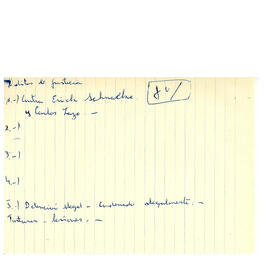 Delitos de justicia
1.-) Contra Erich Schnelke
y Carlos Lazo. -
2.-)
3.-)
4.-)
5.-) Detención ilegal - Condenado ilegalmente. -
Torturas - lesiones. -